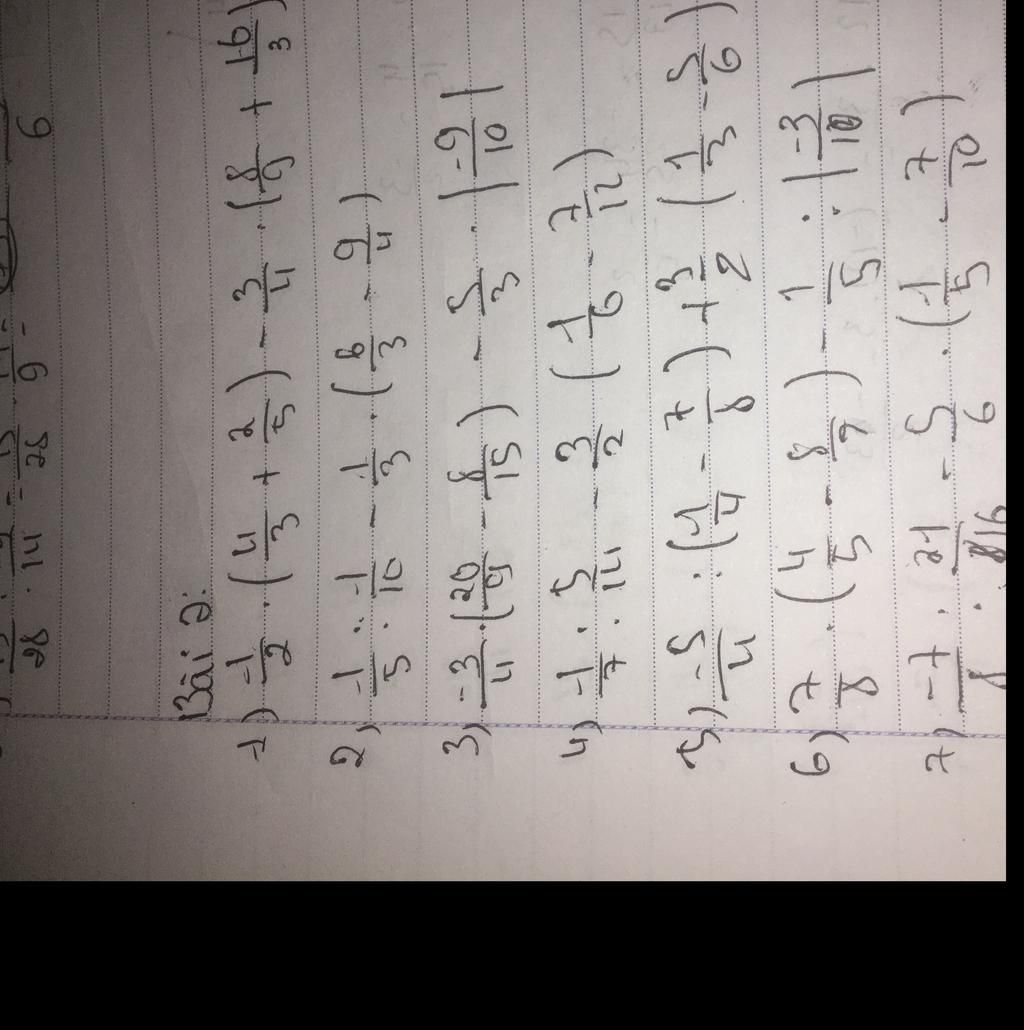 28 . 14 - 28 . 9 = 6
Bài 2:
1) -1/2 . (4/3 + 2/5) - 3/4 . (8/9 + 16/3)
2) -1/5 : -1/10 - 1/3 . (8/3 - 9/4)
3) -3/4 . (20/9 - 8/15) - 5/3 . |-9/10|
4) -1/7 : 5/14 - 3/2 (1/6 - 7/12)
5) -5/4 : (1/4 - 7/8) + 3/2 (1/3 - 5/6)
6) 7/8 . (4/5 - 8/7) - 1/5 : |-3/10|
7) -7/8 : 21/16 - 5/6 . (1/5 - 7/10)